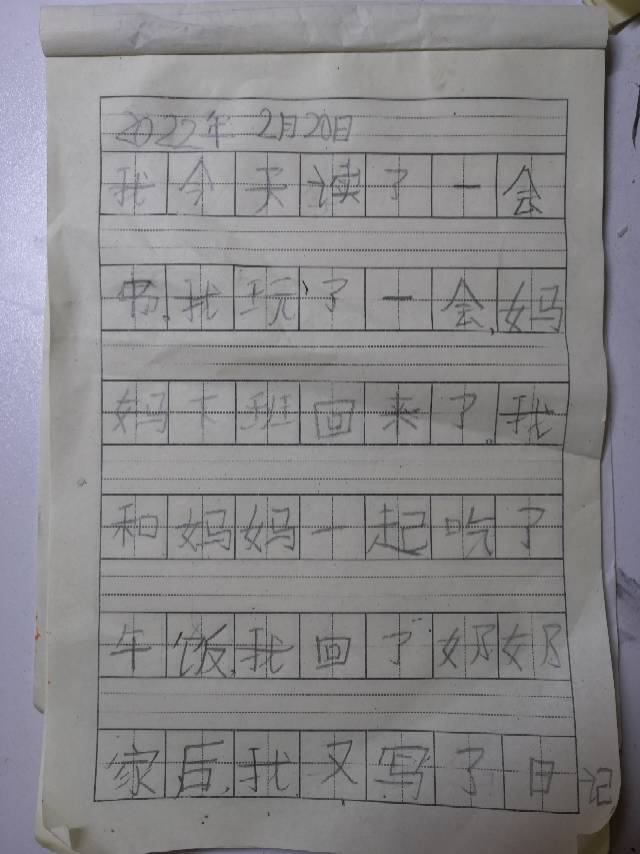 2022年 2月20日
我今天读了一会
书,我玩了一会,妈
妈下班回来了。我
和妈妈一起吃了
午饭,我回了奶奶
家后,我又写了日记